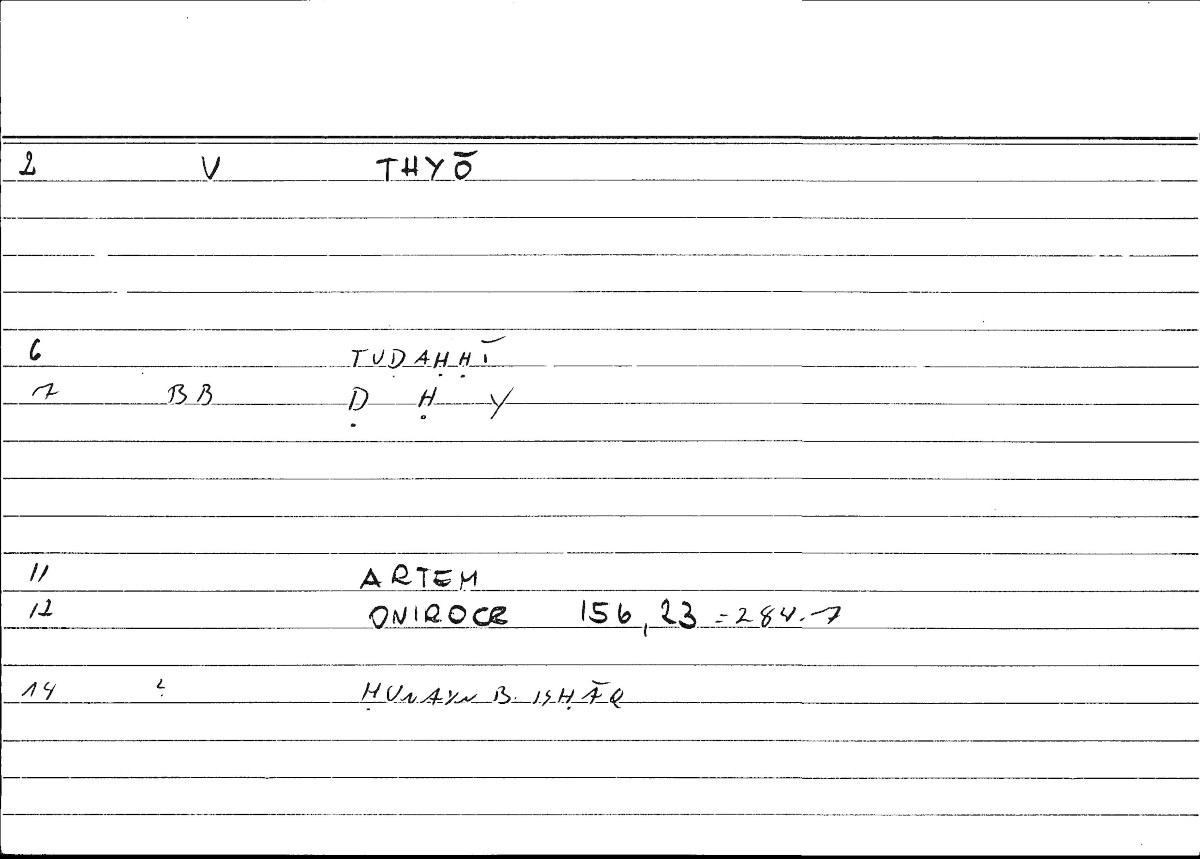 2 V THYŌ
6 TUḌAḤḤĪ
7 BB Ḍ Ḥ Y
11 ARTEM
12 ONIROCR 156,23 = 284.7
14 ? ḤUNAYN B. ISḤĀQ